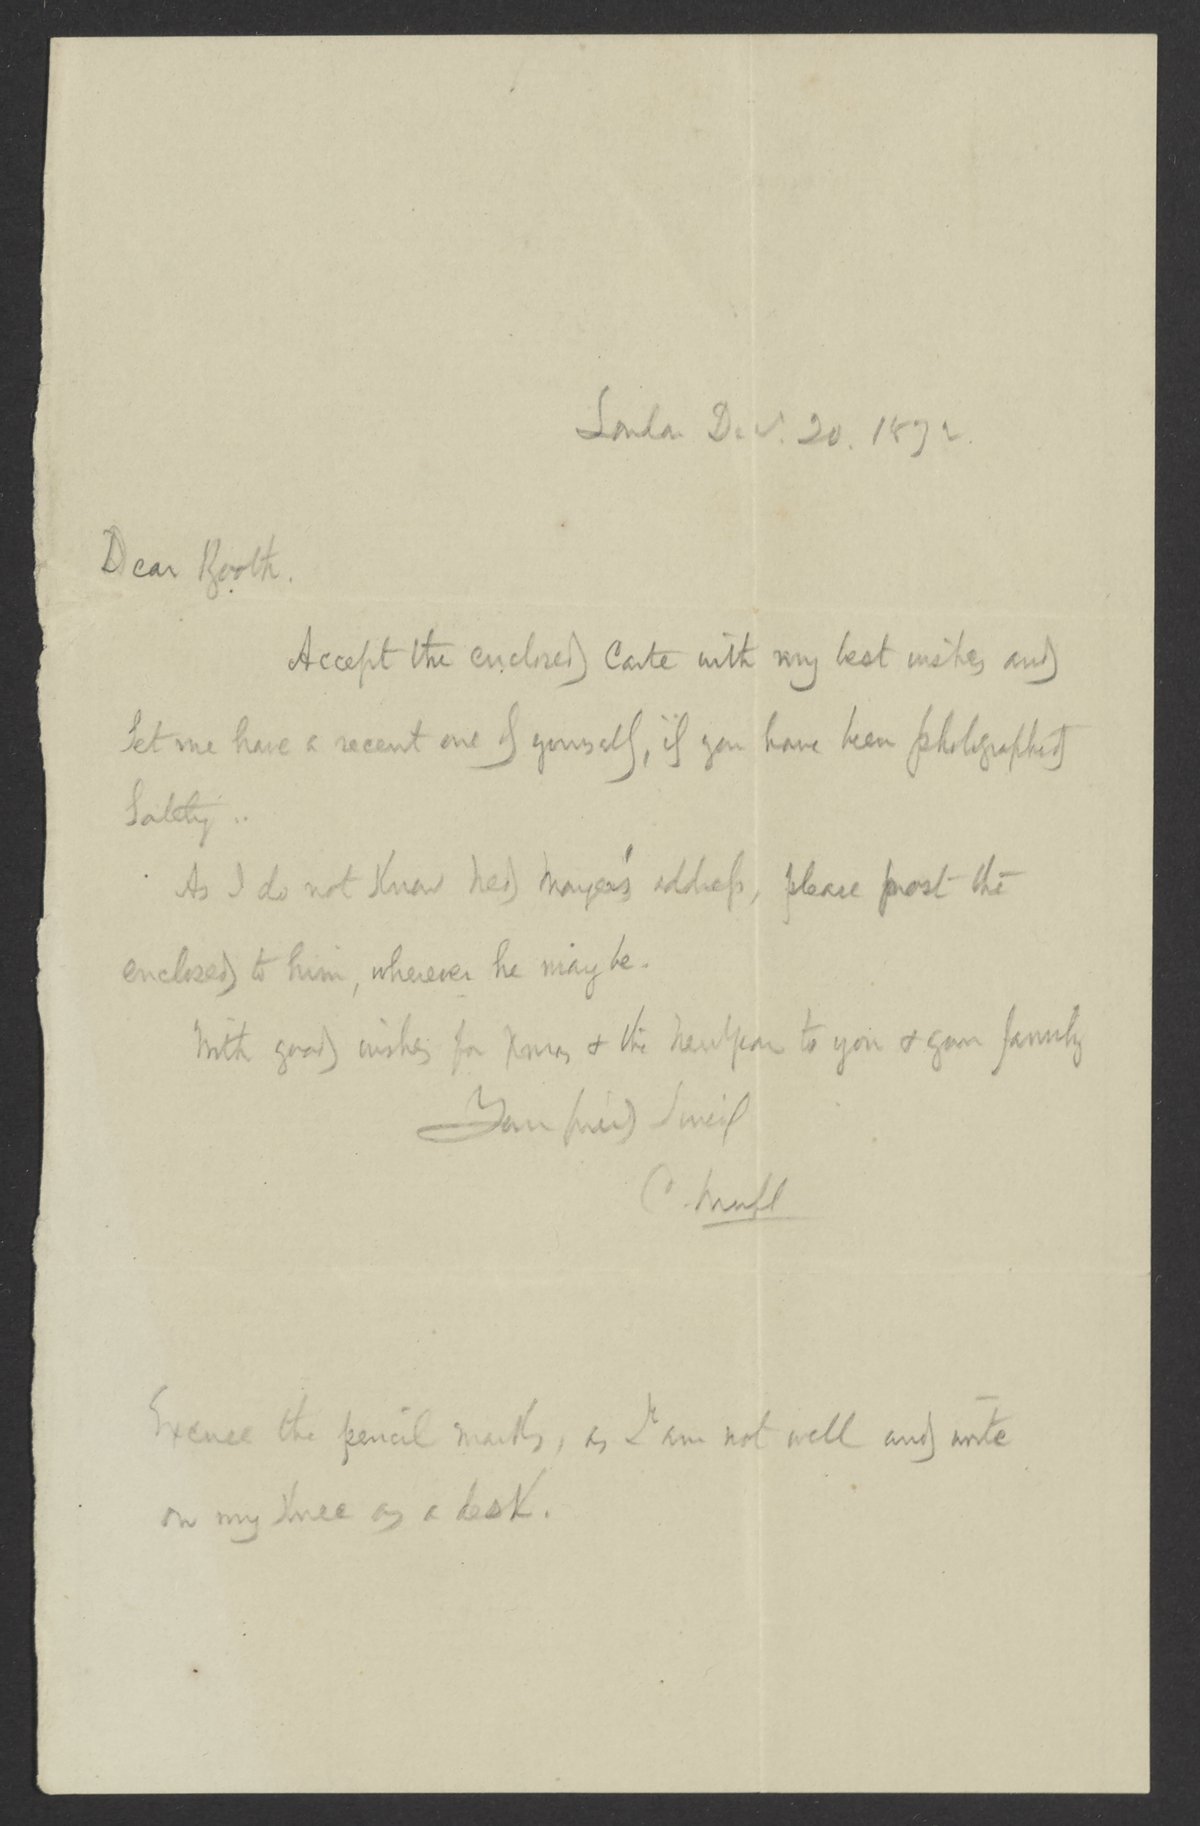 London Dec. 20. 1872.
Dear Booth.
Accept the enclosed Carte with my best wishes and
let me have a recent one of yourself, if you have been photographed
lately..
As I do not know Ned Mayer's address, please post the
enclosed to him, wherever he may be.
With good wishes for Xmas & the New Year to you & your family
Your friend
C.
Excuse the pencil marks, as I am not well and write
on my knee as a desk.